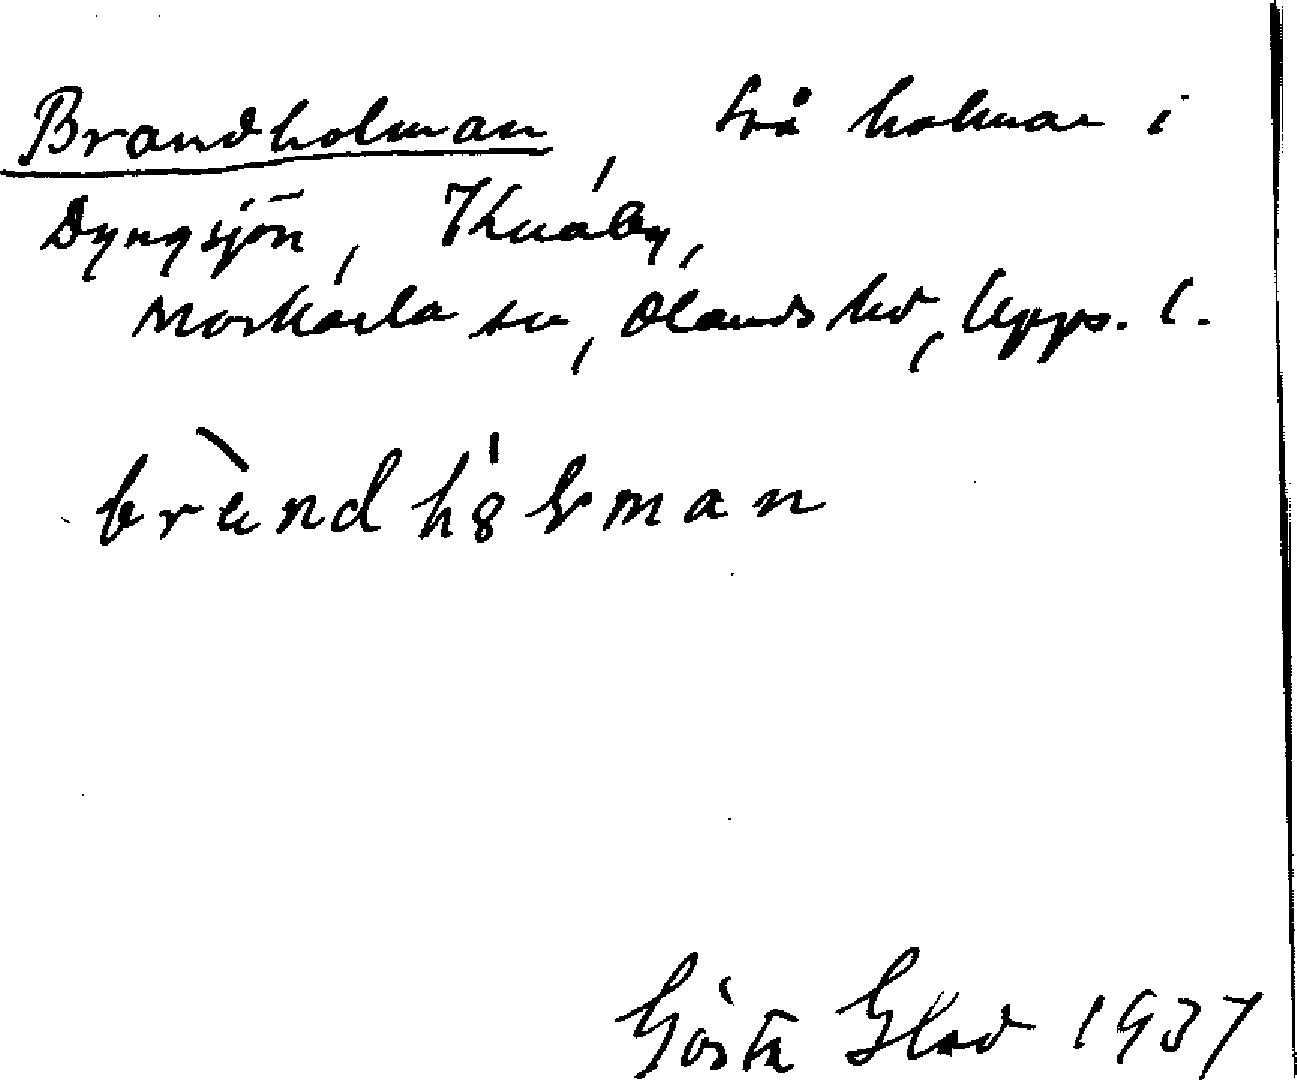 Brandholman, två holmar i
Dyngsjön, Knåby,
Morkarla sn, Olands hd, Upps. l.
brand hȯlman
Gösta Glad 1937